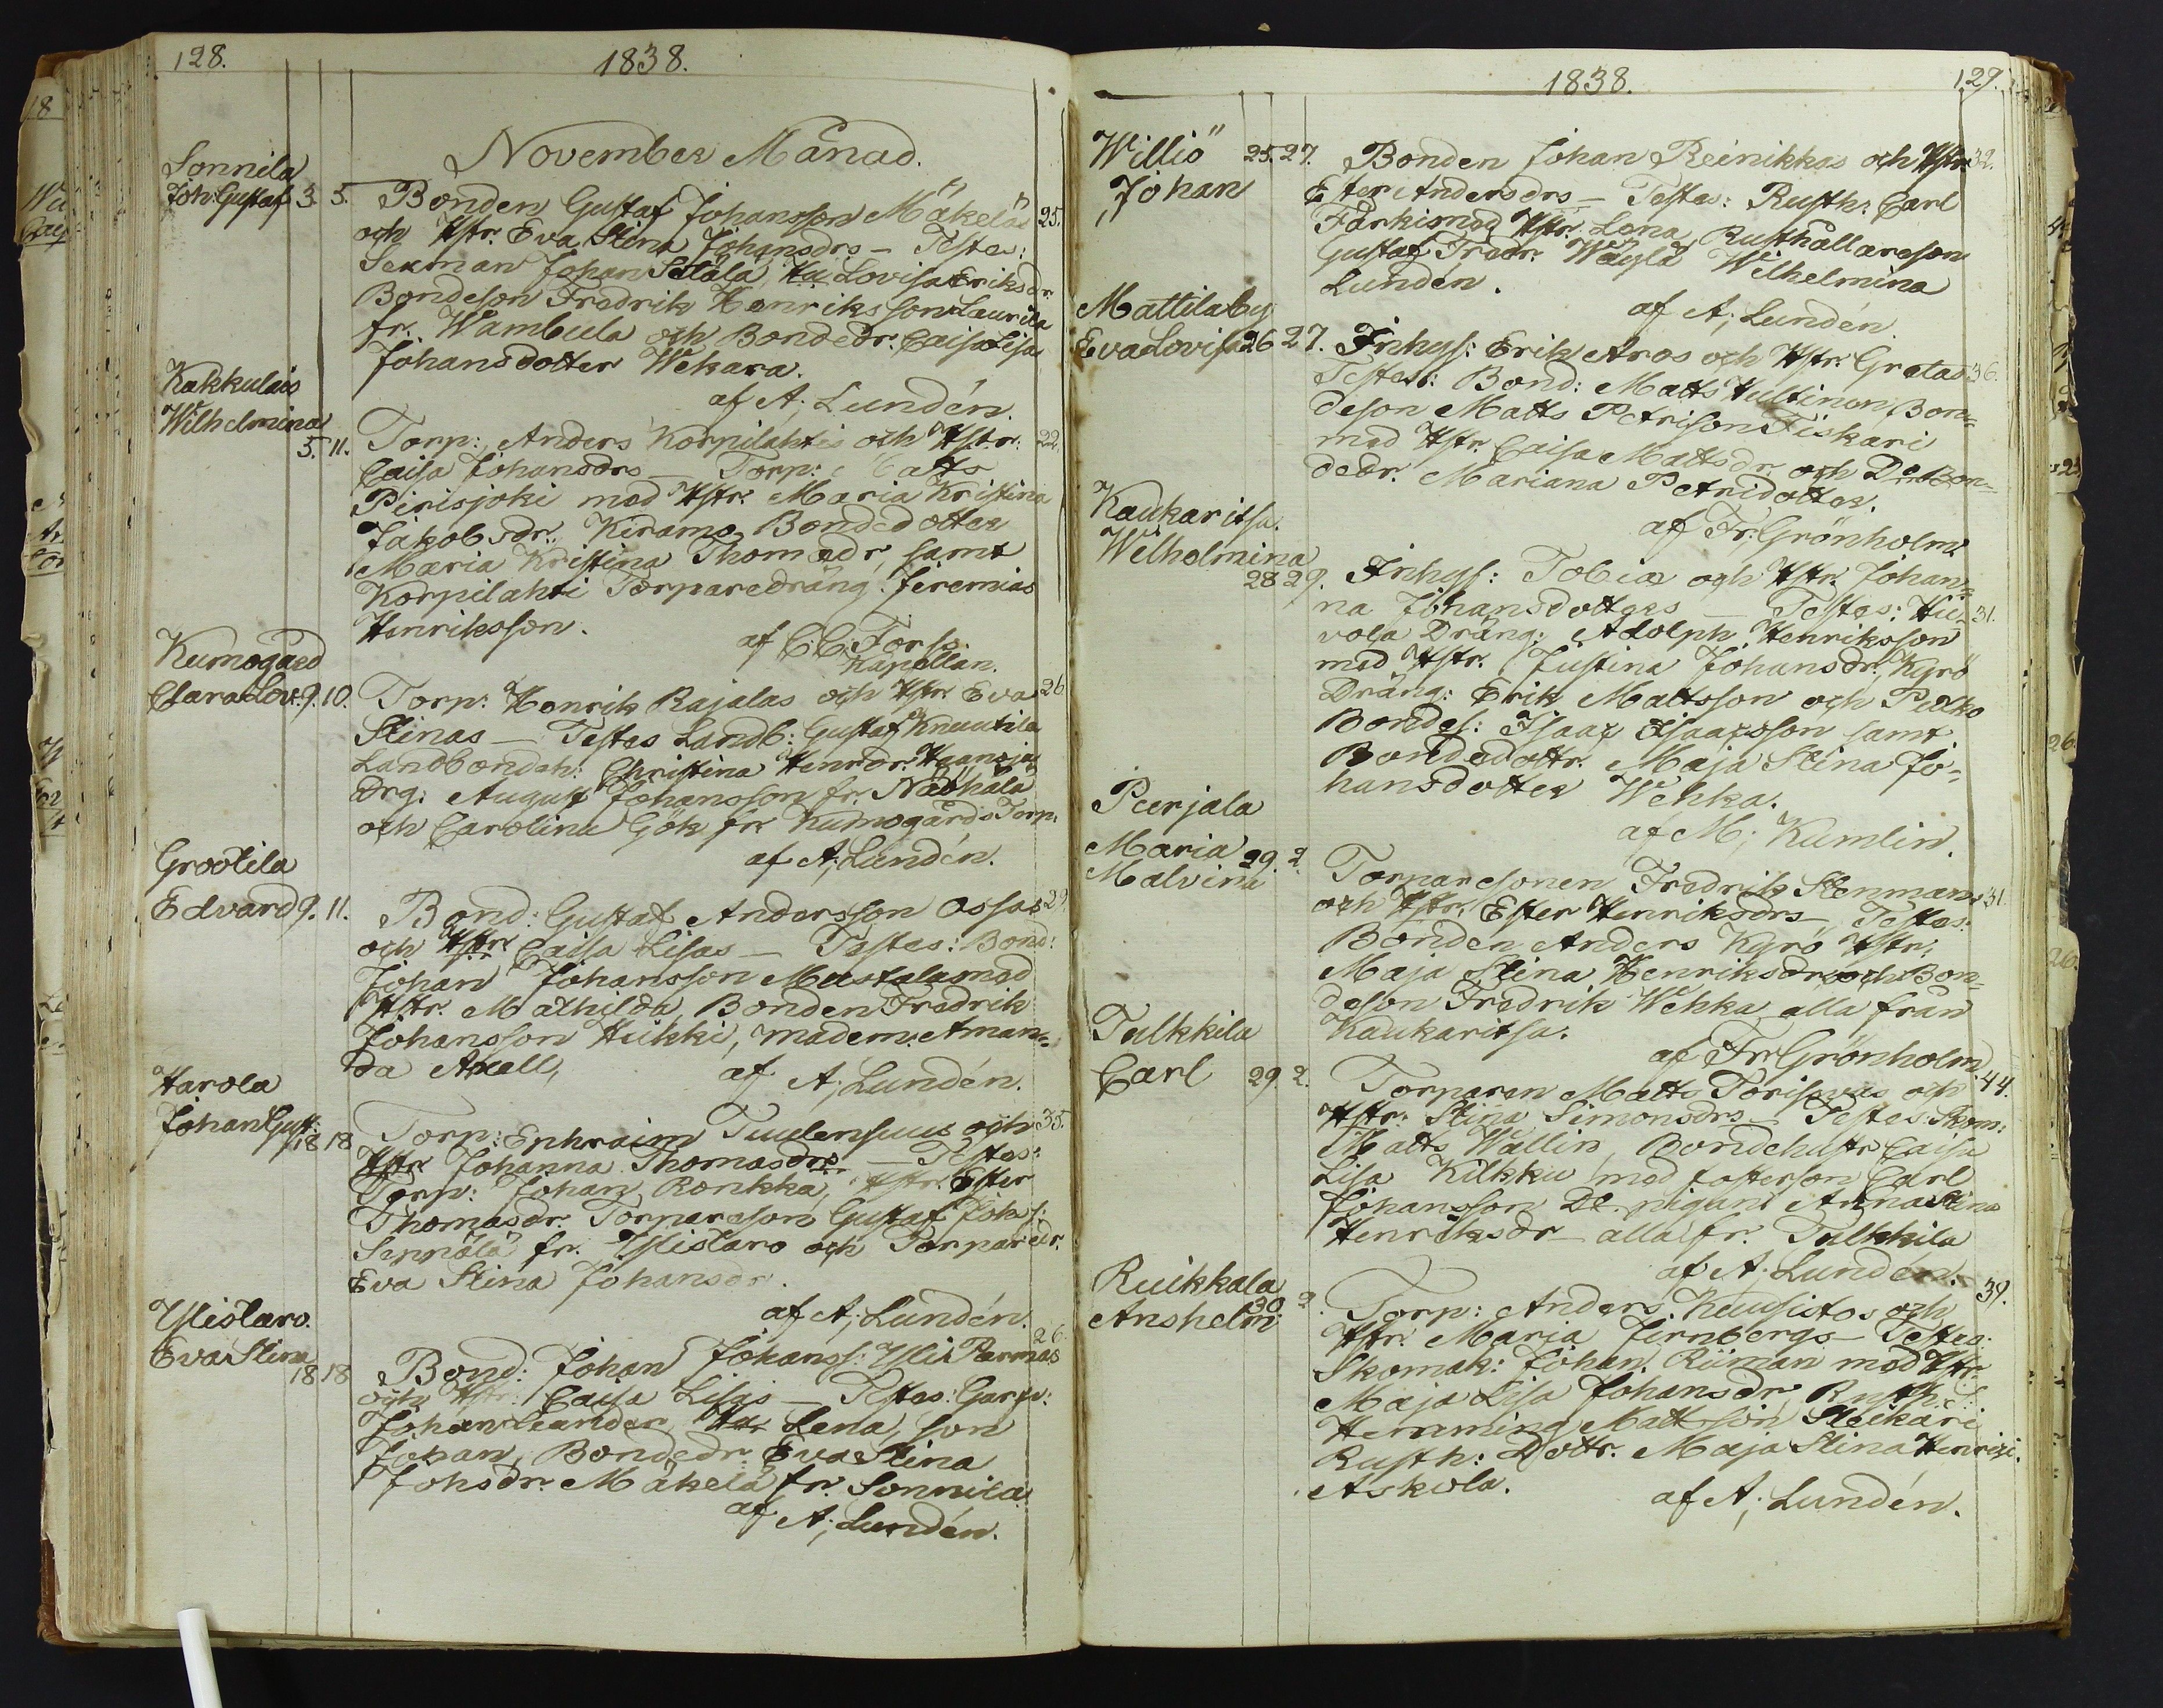 128.
1838.
November Månad.
Sonnila
Joh: Gustaf 3. 5.
Bonden Gustaf Johansson Mäkeläs 25.
och Hstr. Eva Stina Johansdrs — Testes:
Sexman Johan Sälälä, Hu Lovisa Eriksdr
Bondeson Fredrik Henriksson Laurila
fr. Wambula och Bondedr: Caisa Lisa
Johansdotter Wekara.
af A; Lundén.
Kakkulais
Wilhelmina
5. 11.
Torp: Anders Korpilahtis och Hstr: 22.
Caisa Johansdrs — Torp: Matts
Pirisjoki med Hstr. Maria Kristina
Jakobsdr. Kiramo Bondedotter
Maria Kristina Thomasdr, samt
Korpilahti Torparedräng: Jeremias
Henriksson.
af C. C. Forss.
Kapellan.
Kumogård
Clara Lov. 9. 10.
Torp: Henrik Rajalas och Hstr Eva 26.
Stinas — Testes Landb: Gustaf Knuutila
Landbondeh: Christina Henrdr: Haanoja
drg: August Johansson fr. Näöhälä
och Carolina Gök fr. Kumogårds Torp.
af A; Lundén.
Grootila
Edvard 9. 11.
Bond: Gustaf Andersson Ossas 29.
och Hstr. Caisa Lisas — Testes: Bond:
Johan Johansson Mustala med
Hstr. Mathilda, Bonden Fredrik
Johansson Hiikki, Madem: Aman=
da Axell,
af A; Lundén.
Harola
Johan Gust:
18 18
Torp: Ephraim Tuulensuus och 35.
Hstr Johanna Thomasdrs — Testes:
Torp: Johan Ronkka, Hstr. Ester
Thomasdr. Torpareson Gustaf Johs:
Seppälä fr. Ylistaro och Torparedr.
Eva Stina Johansdr.
af A; Lundén.
Ylistaro.
Eva Stina
18 18
26.
Bond: Johan Johanss: Yli Parmas
och Hstr: Caisa Lisas — Testes: Garfv:
Johan Leander Hu Lena, son
Johan, Bondedr. Eva Stina
Johsdr. Mäkelä fr. Sonnila
af A; Lundén.
1838.
129.
Williö
Johan
25. 27.
Bonden Johan Reinikkas och Hstr: 32.
Ester Andersdrs — Testes: Rusth: Carl
Färki med Hstr. Lena, Rusthållareson
Gustaf Fredr. Wäglä Wilhelmina
Lundén.
af A; Lundén
Mattilaby
Eva Lovisa 26 27.
Inhys: Erik Aros och Hstr. Gretas 36.
Testes: Bond: Matts Hultinen, Bon=
deson Matts Petrison Fiskari
med Hstr. Caisa Mattsdr. och De Bon=
dedr. Mariana Petridotter.
af Fr; Grönholm.
Kaukaritsa.
Wilhelmina
28 29.
Inhys: Tobias och Hstr. Johan=
na Johansdotters — Testes: Hii= 31.
vola Dräng: Adolph Henriksson
med Hstr. Justina Johansdr., Kyrö
Dräng: Erik Mattsson och Pelko
Bondes: Isaac Isaacsson samt
Bondedottr. Maja Stina Jo=
hansdotter Wehka.
af M; Kumlin.
Peerjala
Maria
Malvina
29. 2
Torparesonen Fredrik Stenmans 31.
och Hstr. Ester Henriksdrs — Testes:
Bonden Anders Kyrö Hstr.
Maja Stina Henriksdr och Bon=
deson Fredrik Wehka alla från
Kaukaritsa.
af Fr Grönholm
Tulkkila
Carl 29. 2.
Torparen Matts Torispääs och 44.
Hstr. Stina Simonsdrs — Testes: Skom:
Matts Wallin Bondehustr Caisa
Lisa Kilkku med fosterson Carl
Johansson De. pigan Anna Stina
Henriksdr — alla fr. Tulkkila
af A; Lundén.
Ruikkala
Anshelm
30. 2.
39.
Torp: Anders Kuusistos och
Hstr. Maria Jernbergs — Testes:
Skomak: Johan Riiman med Hstr.
Maja Lisa Johansdr, Rusth: S:
Hemming Mattsson Sleikäri
Rusth: Dottr. Maja Stina Henrici.
Askola.
af A; Lundén.